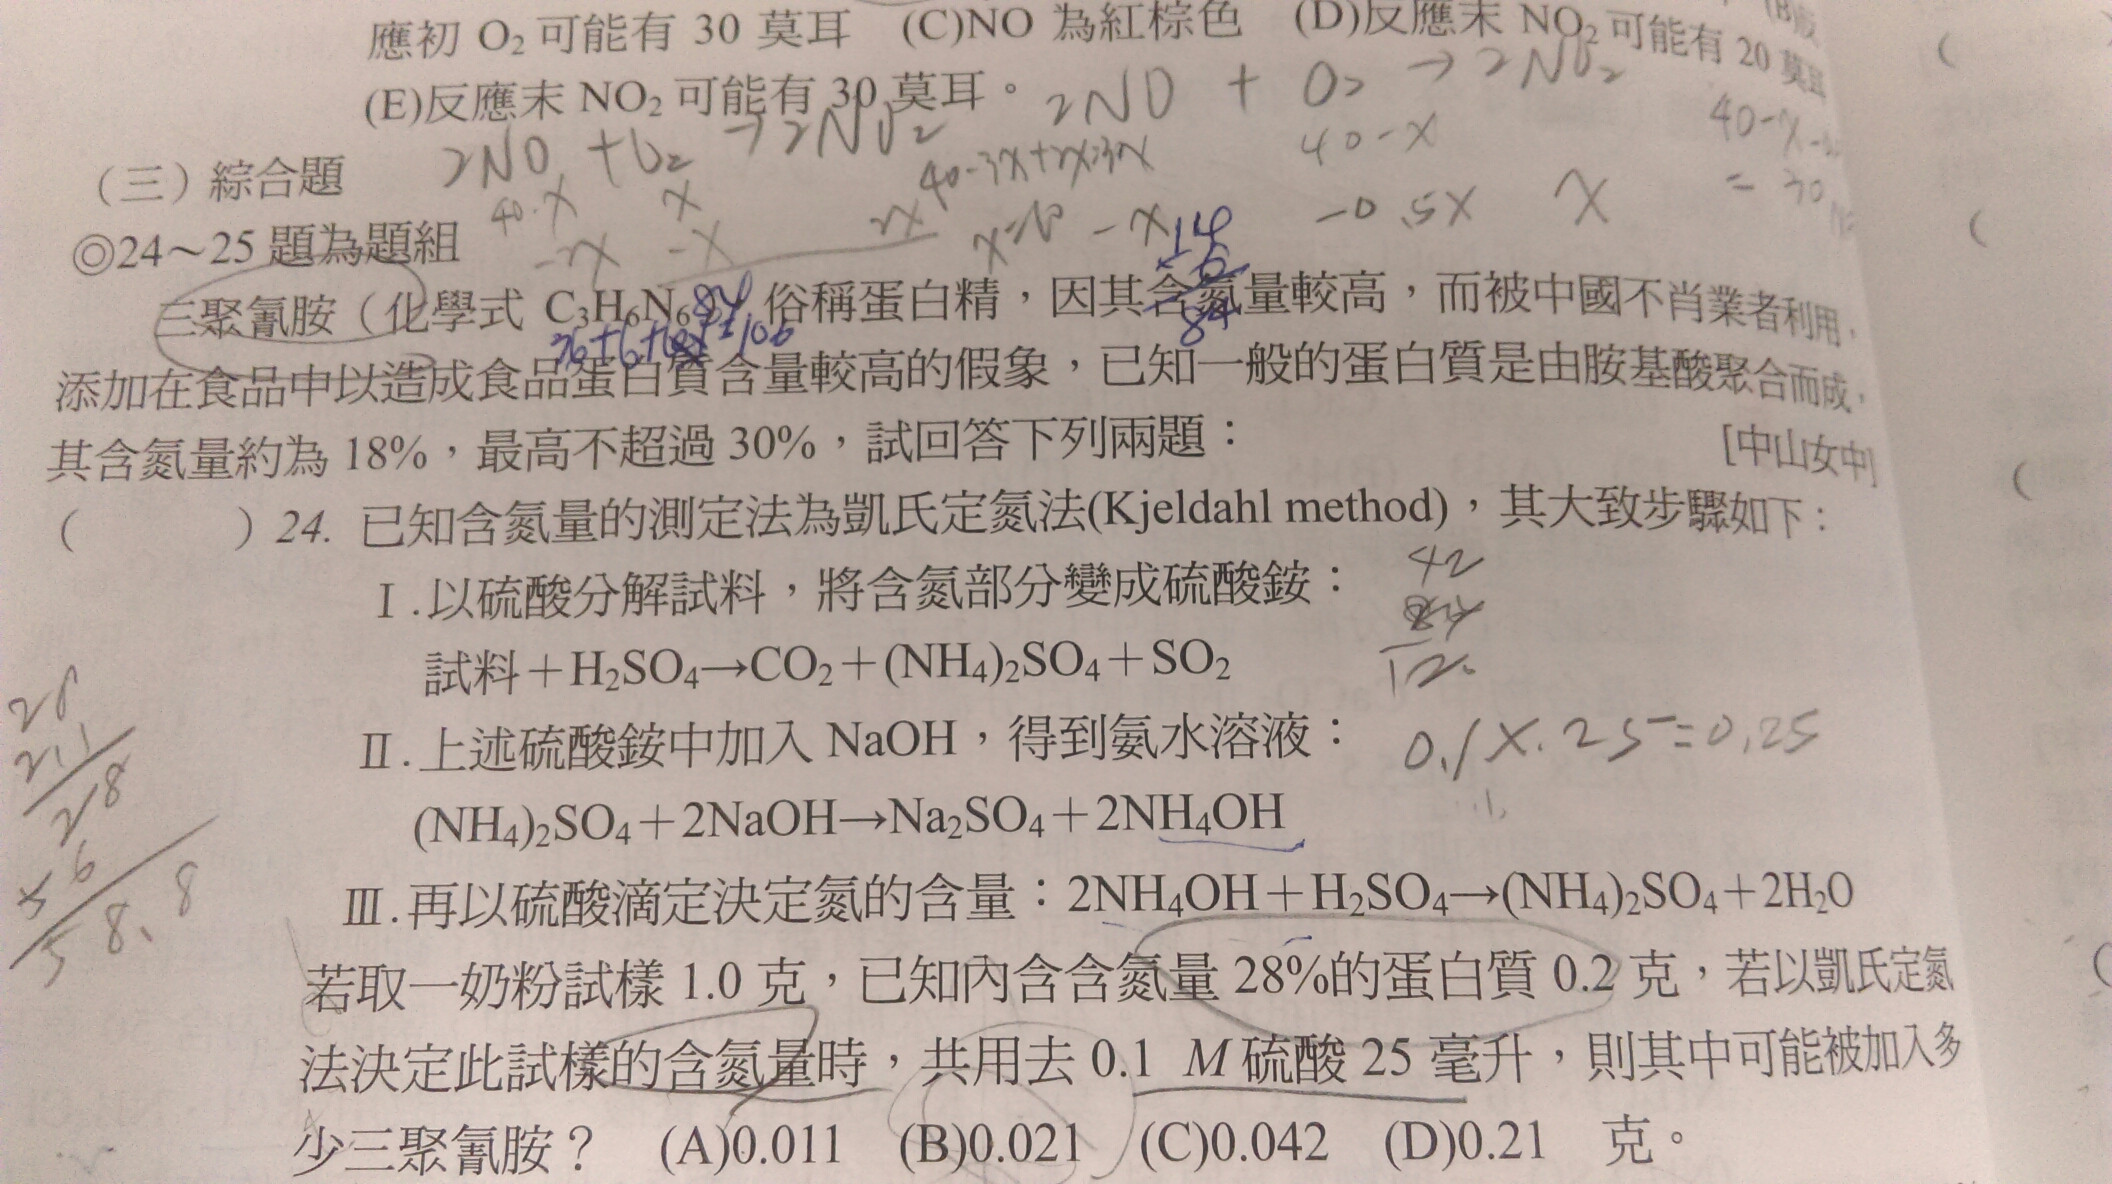 應初 O₂ 可能有 30 莫耳 (C)NO 為紅棕色 (D)反應末 NO₂ 可能有 20 莫耳
(E)反應末 NO₂ 可能有 30 莫耳。
2NO + O₂ → 2NO₂
2NO + O₂ → 2NO₂
40-X
40-3X+2X=30
(三)綜合題
40-X X 2X
-0.5X X
◎24～25 題為題組
-2X -X
14
6
84
三聚氰胺（化學式 C₃H₆N₆）俗稱蛋白精，因其含氮量較高，而被中國不肖業者利用，
添加在食品中以造成食品蛋白質含量較高的假象，已知一般的蛋白質是由胺基酸聚合而成，
其含氮量約為 18%，最高不超過 30%，試回答下列兩題： [中山女中]
( ) 24. 已知含氮量的測定法為凱氏定氮法(Kjeldahl method)，其大致步驟如下：
Ⅰ.以硫酸分解試料，將含氮部分變成硫酸銨：
42
84
試料＋H₂SO₄→CO₂＋(NH₄)₂SO₄＋SO₂
Ⅱ.上述硫酸銨中加入 NaOH，得到氨水溶液：
0.1X.25=0.25
(NH₄)₂SO₄＋2NaOH→Na₂SO₄＋2NH₄OH
28
6
58.8
Ⅲ.再以硫酸滴定決定氮的含量：2NH₄OH＋H₂SO₄→(NH₄)₂SO₄＋2H₂O
若取一奶粉試樣 1.0 克，已知內含含氮量 28%的蛋白質 0.2 克，若以凱氏定氮
法決定此試樣的含氮量時，共用去 0.1 M 硫酸 25 毫升，則其中可能被加入多
少三聚氰胺？ (A)0.011 (B)0.021 (C)0.042 (D)0.21 克。